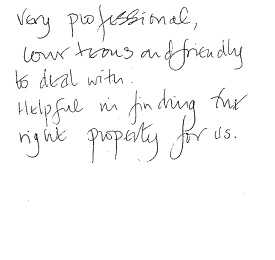 Very professional,
courteous and friendly
to deal with.
Helpful in finding the
right property for us.